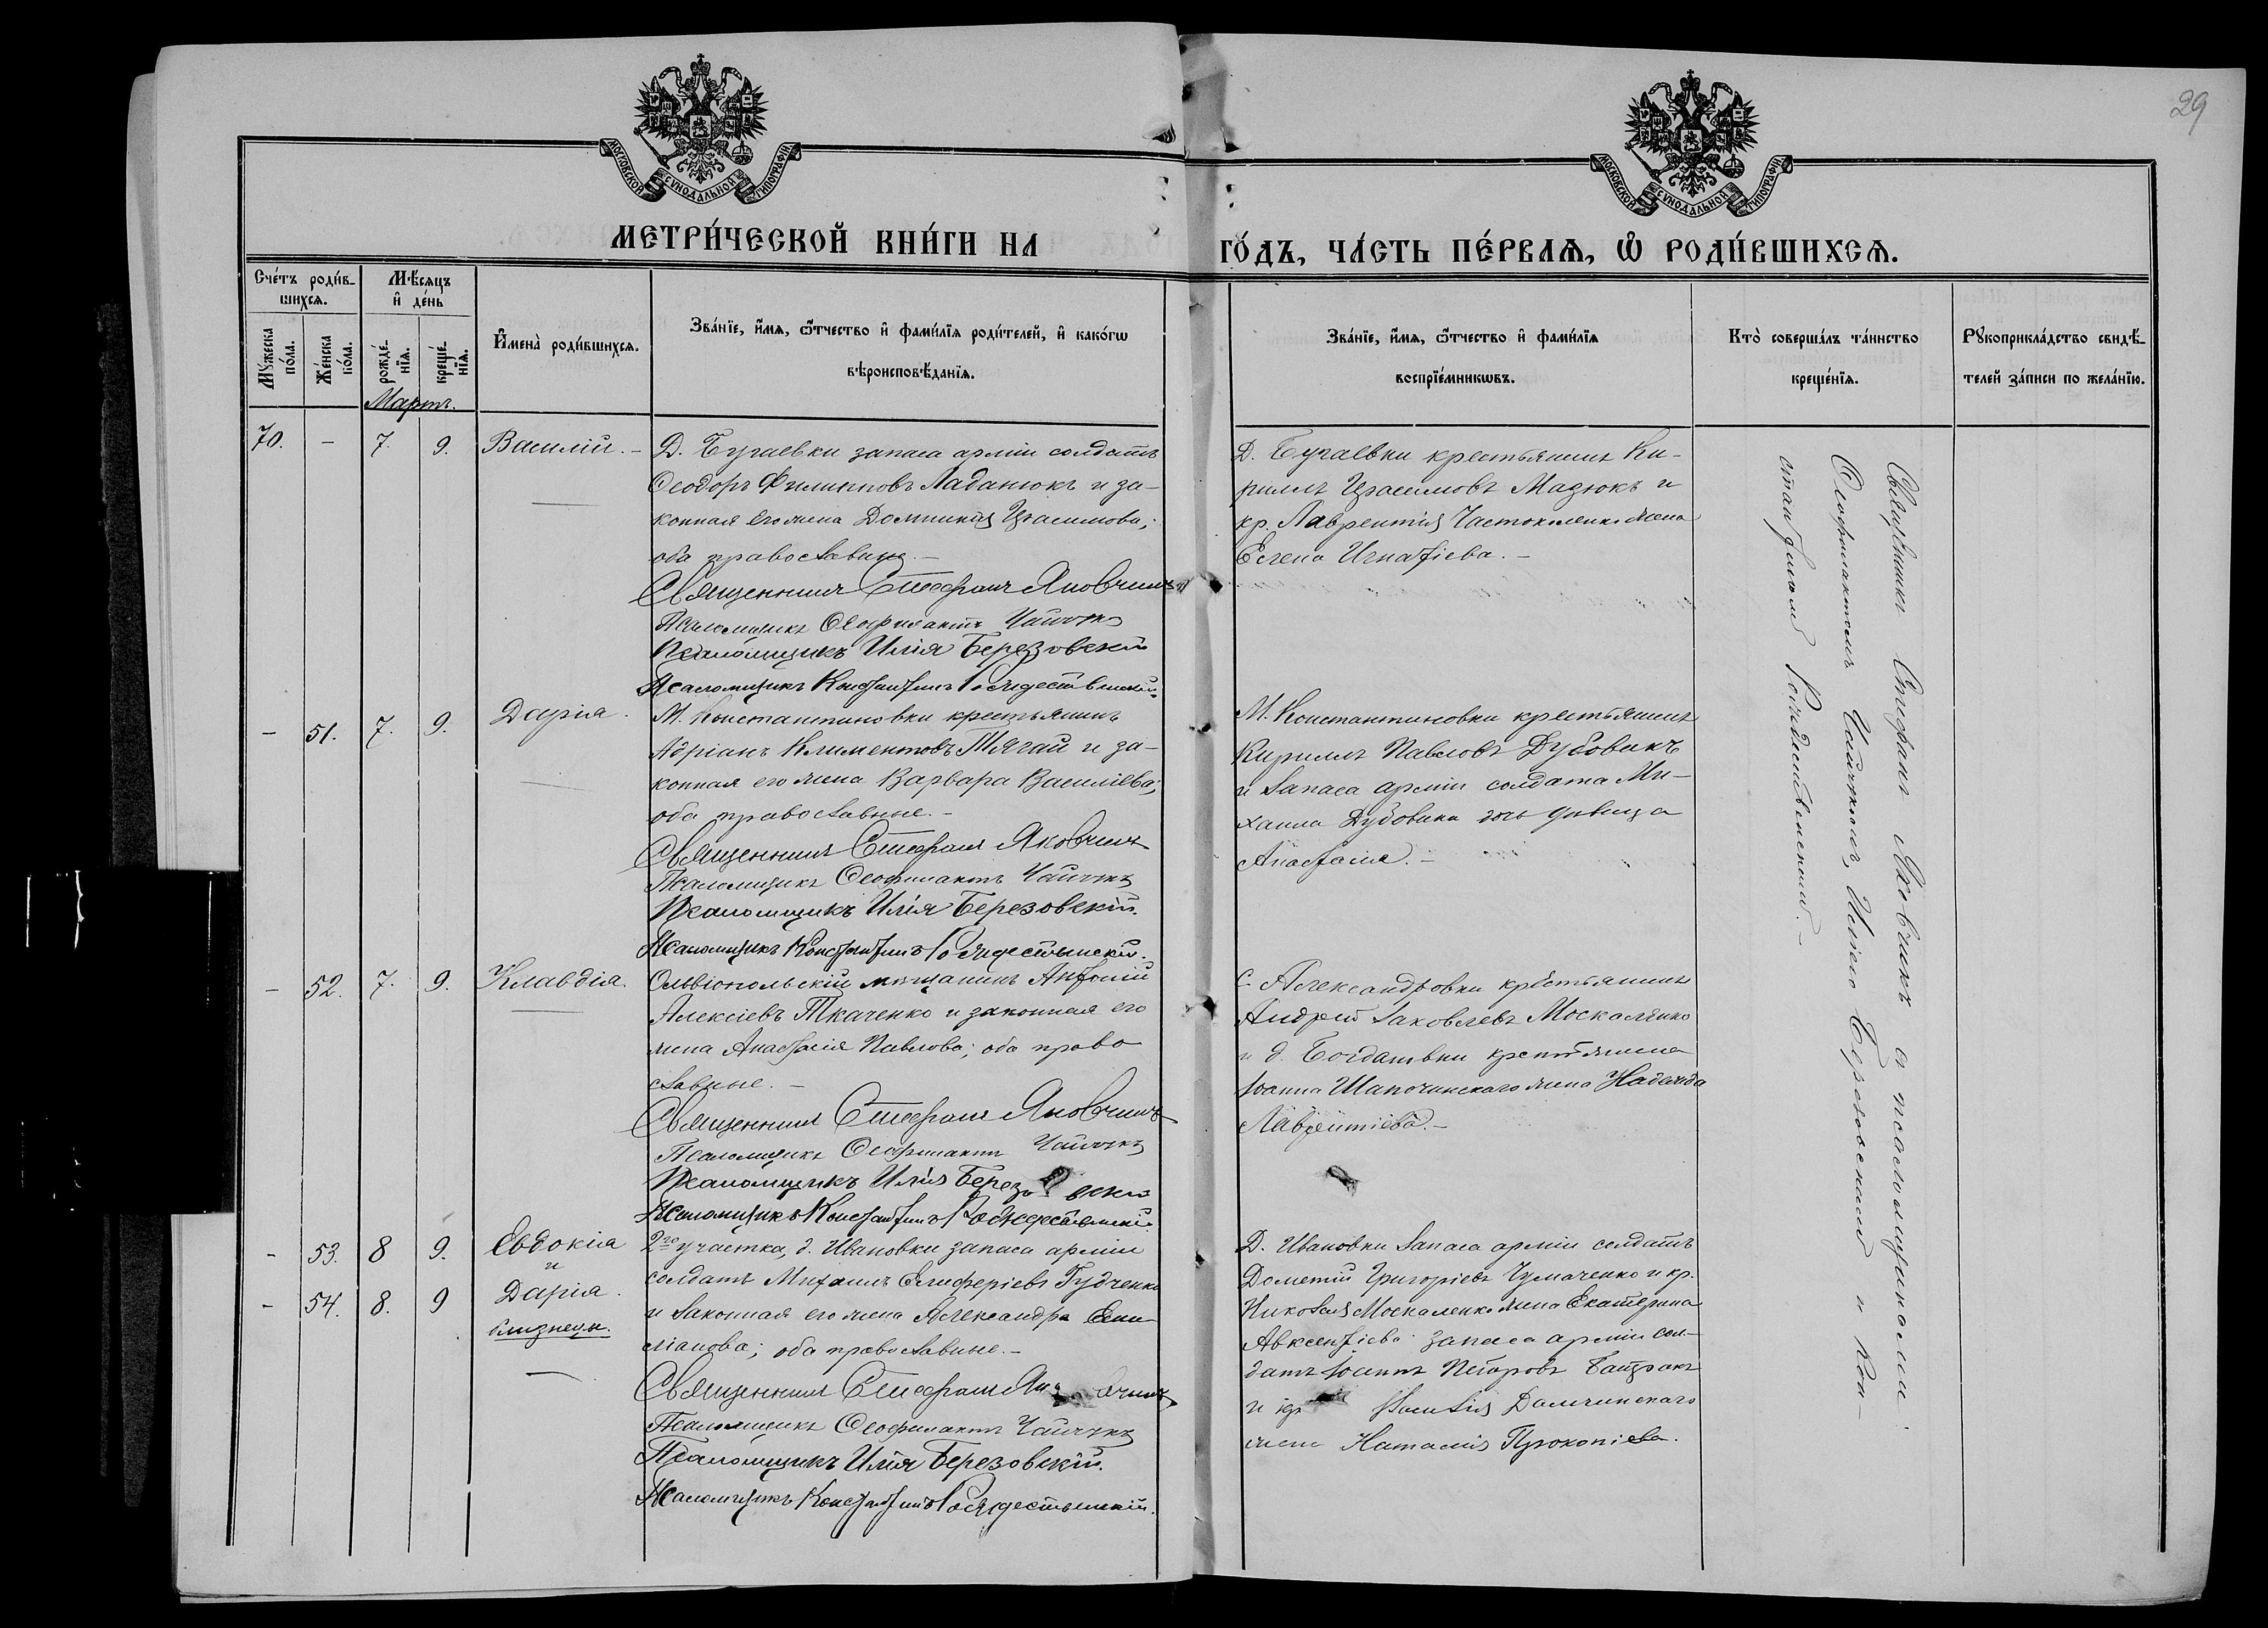 29
МОСКОВСКОЙ СѴНОДАЛЬНОЙ ТИПОГРАФІИ
МОСКОВСКОЙ СѴНОДАЛЬНОЙ ТИПОГРАФІИ
МЕТРИ́ЧЕСКОЙ КНИ́ГИ НА
ГО́ДЪ, ЧА́СТЬ ПЕ́РВАѦ, Ѽ РОДИ́ВШИХСѦ.
Сче́тъ роди́в-
шихсѧ.
Мꙋжеска по́ла.
Же́нска по́ла.
Мѣ́сѧцъ
и҆ де́нь
рожде́-
нїѧ.
креще́-
нїѧ.
И҆мена̀ роди́вшихсѧ.
Зва́нїе, и҆́мѧ, ѻ҆́тчество и҆ фами́лїѧ роди́телей, и҆ како́гѡ
вѣроисповѣ́данїѧ.
Зва́нїе, и҆́мѧ, ѻ҆́тчество и҆ фами́лїѧ
воспрїе́мникѡвъ.
Кто̀ соверша́лъ та́инство
креще́нїѧ.
Рꙋкоприкла́дство свидѣ́-
телей за́писи по жела́нїю.
Мартъ.
70. - 7. 9. Василій. -
Д. Бугаевки запаса арміи солдатъ
Ѳеодоръ Филипповъ Ладанюкъ и за-
конная его жена Домникія Герасимова;
оба православные. -
Священникъ Стефанъ Яковчикъ
Псаломщикъ Ѳеофилактъ Чайчукъ
Псаломщикъ Илія Березовскій
Псаломщикъ Константинъ Рождественскій.
Д. Бугаевки крестьянинъ Ки-
риллъ Герасимовъ Мадюкъ и
кр. Лаврентія Частоколенко жена
Елена Игнатіева. -
- 51. 7. 9. Дарія.
М. Константиновки крестьянинъ
Адріанъ Климентовъ Тягай и за-
конная его жена Варвара Василіева;
оба православные. -
Священникъ Стефанъ Яковчикъ
Псаломщикъ Ѳеофилактъ Чайчукъ
Псаломщикъ Илія Березовскій.
Псаломщикъ Константинъ Рождественскій.
М. Константиновки крестьянинъ
Кириллъ Павловъ Дубовикъ
и запаса арміи солдата Ми-
хаила Дубовика дочь дѣвица
Анастасія. -
- 52. 7. 9. Клавдія.
Ольвіопольскій мѣщанинъ Антоній
Алексіевъ Ткаченко и законная его
жена Анастасія Павлова; оба право
славные. -
Священникъ Стефанъ Яковчикъ
Псаломщикъ Ѳеофилактъ Чайчукъ
Псаломщикъ Илія Березовскій
Псаломщикъ Константинъ Рождественскій.
С. Александровки крестьянинъ
Андрей Іаковлевъ Москаленко
и д. Богдановки крестьянина
Іоанна Шапочинскаго жена Надежда
Лаврентіева. -
- 53. 8 9. Евдокія
и
- 54. 8. 9 Дарія.
близнецы.
2го участка, д. Ивановки запаса арміи
солдатъ Михаилъ Елиферіевъ Гудченко
и законная его жена Александра Еми-
ліанова; оба православные. -
Священникъ Стефанъ Яковчикъ
Псаломщикъ Ѳеофилактъ Чайчукъ
Псаломщикъ Илія Березовскій.
Псаломщикъ Константинъ Рождественскій.
Д. Ивановки запаса арміи солдатъ
Дометій Григоріевъ Чумаченко и кр.
Николая Москаленко жена Екатерина
Авксентіева запаса арміи сол-
датъ Іосифъ Петровъ Батракъ
и кр. Далчинскаго
жена Наталія Прокопіева.
Священникъ Стефанъ Яковчикъ съ псаломщиками
Ѳеофилактомъ Чайчукомъ, Иліею Березовскимъ и Кон-
стантиномъ Рождественскимъ. -